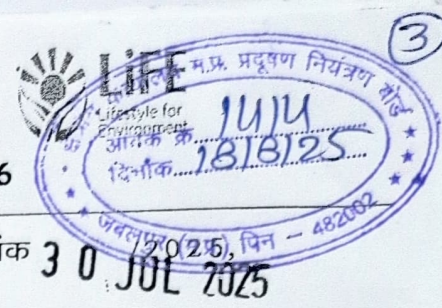 3
LiFE
Lifestyle for
Environment
म.प्र. प्रदूषण नियंत्रण बोर्ड
आवक क्र. 1414
दिनांक 18/8/25
जबलपुर (म.प्र.) पिन - 482002
6
ंक 30 JUL 2025
/2025,